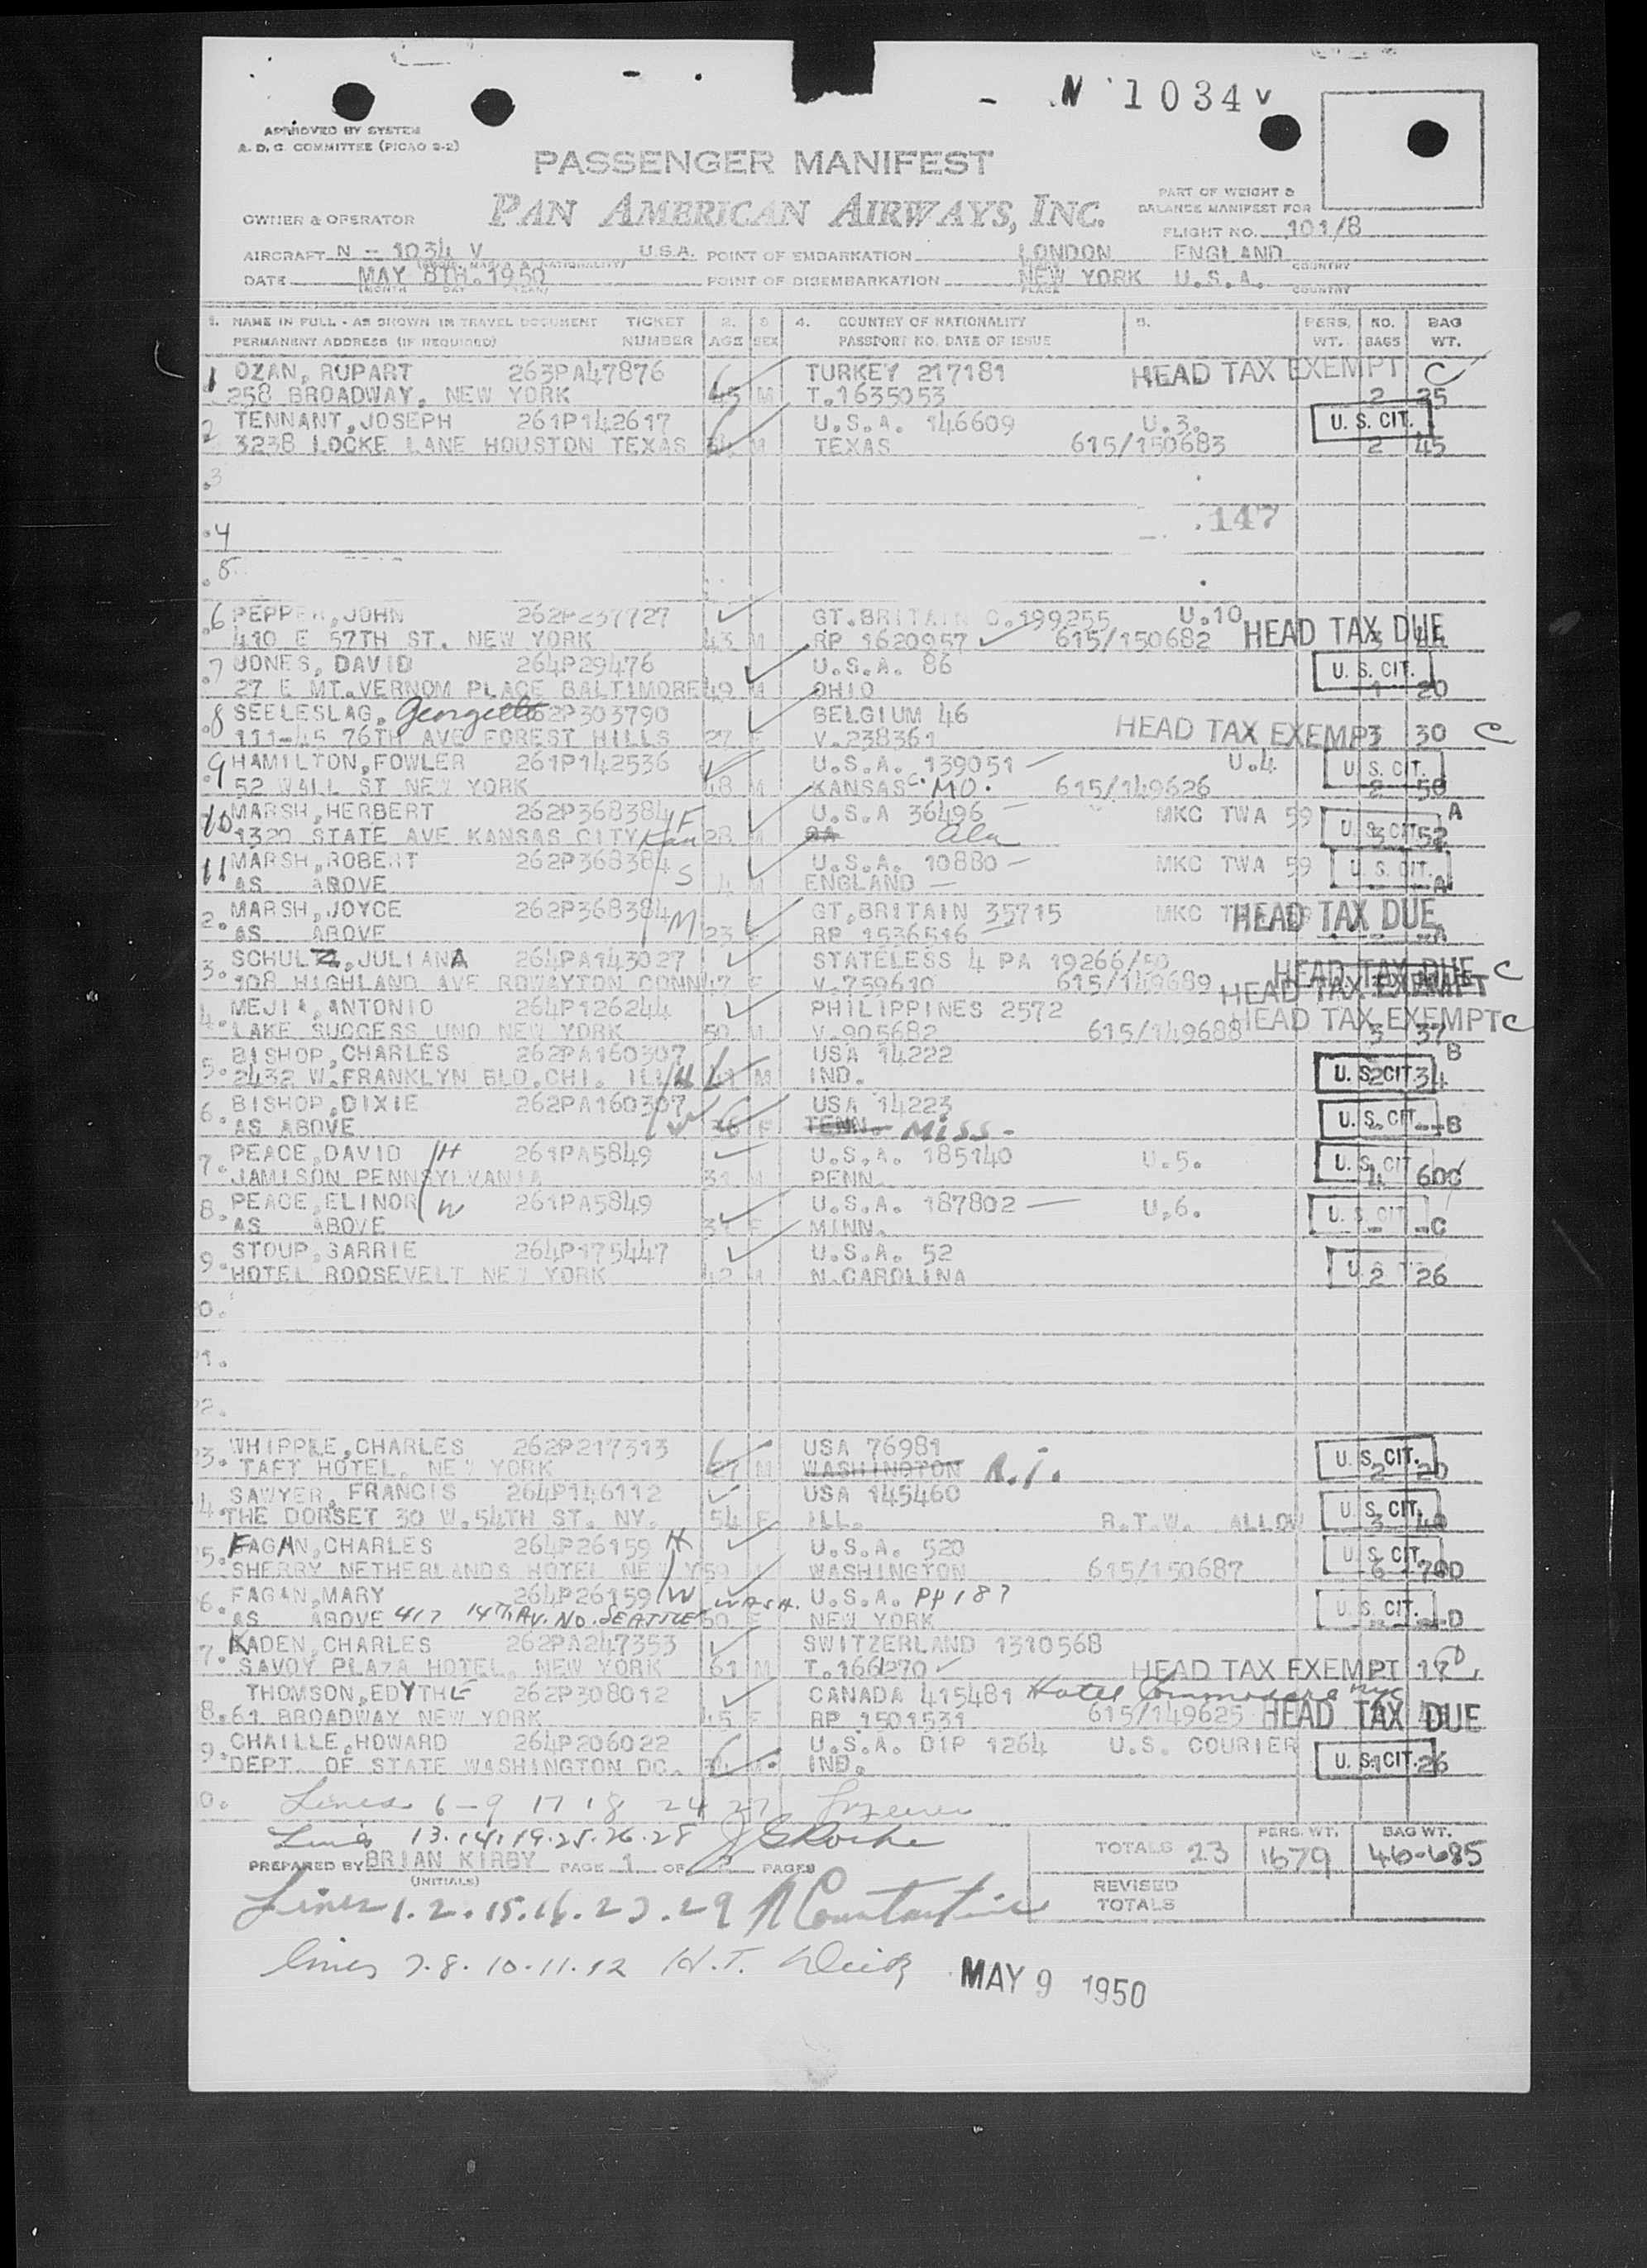 N 1034 V
APPROVED BY SYSTEM
A. D. C. COMMITTEE (PICAO 2-2)
PASSENGER MANIFEST
PAN AMERICAN AIRWAYS, INC.
OWNER & OPERATOR
PART OF WEIGHT &
BALANCE MANIFEST FOR
FLIGHT NO. 101/8
AIRCRAFT N - 1034 V U.S.A. POINT OF EMBARKATION LONDON ENGLAND
DATE MAY 8TH. 1950 POINT OF DISEMBARKATION NEW YORK U.S.A.
(MONTH DAY YEAR) PLACE COUNTRY
1. NAME IN FULL - AS SHOWN IN TRAVEL DOCUMENT TICKET 2. 3 4. COUNTRY OF NATIONALITY 5. PERS. NO. BAG
PERMANENT ADDRESS (IF REQUIRED) NUMBER AGE SEX PASSPORT NO. DATE OF ISSUE WT. BAGS WT.
1 OZAN, RUPART 263PA47876 TURKEY 217181 HEAD TAX EXEMPT C
258 BROADWAY, NEW YORK 45 M T.1635053 2 25
2 TENNANT, JOSEPH 261P142617 U.S.A. 146609 U.3. U. S. CIT.
3238 LOCKE LANE HOUSTON TEXAS M TEXAS 615/150683 2 45
.3
.147
.4
.5
.6 PEPPER, JOHN 262P237727 GT.BRITAIN C.199255 U.10
410 E 57TH ST. NEW YORK 43 M RP 1620957 615/150682 HEAD TAX DUE 3 44
.7 JONES, DAVID 264P29476 U.S.A. 86 U. S. CIT.
27 E MT.VERNOM PLACE BALTIMORE 49 M OHIO 1 20
.8 SEELESLAG, Georgette 262P303790 BELGIUM 46
111-45 76TH AVE FOREST HILLS 27 F V.238361 HEAD TAX EXEMPT 3 30 C
.9 HAMILTON, FOWLER 261P142536 U.S.A. 139051 U.4 U. S. CIT.
52 WALL ST NEW YORK 48 M KANSAS C. MO. 615/149626 2 50
10 MARSH, HERBERT 262P368384 F U.S.A 36496 MKC TWA 59 U. S. CIT. A
1320 STATE AVE KANSAS CITY Kan 28 M Ala 3 52
11 MARSH, ROBERT 262P368384 S U.S.A. 10880 MKC TWA 59 U. S. CIT.
AS ABOVE 4 M ENGLAND A
2. MARSH, JOYCE 262P368384 M GT.BRITAIN 35715 MKC HEAD TAX DUE
AS ABOVE 23 F RP 1536516 - -A
3. SCHULTZ, JULIANA 264PA143027 STATELESS 4 PA 19266/50 HEAD TAX DUE C
108 HIGHLAND AVE ROWAYTON CONN 47 F V.759610 615/149689 HEAD TAX EXEMPT
4. MEJIA, ANTONIO 264P126244 PHILIPPINES 2572
LAKE SUCCESS UNO NEW YORK 50 M V.905682 615/149688 HEAD TAX EXEMPT C 3 37
5. BISHOP, CHARLES 262PA160307 USA 14222 B
2432 W.FRANKLYN BLD.CHI. ILL H 41 M IND. U. S. CIT. 2 34
6. BISHOP, DIXIE 262PA160307 USA 14223
AS ABOVE W 36 F TENN. MISS - U. S. CIT. --B
7. PEACE, DAVID H 261PA5849 U.S.A. 185140 U.5. U. S. CIT
JAMISON PENNSYLVANIA 31 M PENN. 4 60C
8. PEACE, ELINOR W 261PA5849 U.S.A. 187802 U.6. U. S. CIT
AS ABOVE 31 F MINN. - -C
9. STOUP, GARRIE 264P175447 U.S.A. 52
HOTEL ROOSEVELT NEW YORK 42 M N.CAROLINA U 2 26
0.
1.
2.
3. WHIPPLE, CHARLES 262P217313 USA 76981
TAFT HOTEL, NEW YORK M WASHINGTON R.I. U. S. CIT. 2 20
4. SAWYER, FRANCIS 264P146112 USA 145460
THE DORSET 30 W.54TH ST. NY. 54 F ILL. R.T.W. ALLOW U. S. CIT. 3 40
5. FAGAN, CHARLES 264P26159 H U.S.A. 520 U. S. CIT.
SHERRY NETHERLANDS HOTEL NEW Y 59 WASHINGTON 615/150687 6 70D
6. FAGAN, MARY 264P26159 W WASH. U.S.A. PP 187 U. S. CIT.
AS ABOVE 417 14TH AV. NO. SEATTLE 50 F NEW YORK --D
7. KADEN, CHARLES 262PA247353 SWITZERLAND 1310568
SAVOY PLAZA HOTEL, NEW YORK 61 M T.1661270 HEAD TAX EXEMPT 1
8. THOMSON, EDYTHE 262P308012 CANADA 415481 Hotel Commodore NYC
61 BROADWAY NEW YORK 45 F RP 1501531 615/149625 HEAD TAX DUE
9. CHAILLE, HOWARD 264P206022 U.S.A. DIP 1264 U.S. COURIER
DEPT. OF STATE WASHINGTON DC. 34 M. IND. U. S. CIT. 1 26
0. Lines 6-9 17 18 24 27
Lines 13.14.19.25.26.28
PREPARED BY BRIAN KIRBY PAGE 1 OF 2 PAGES
(INITIALS)
TOTALS 23 PERS. WT. 1679 BAG WT. 46-685
REVISED
TOTALS
Lines 1.2.15.16.23.29
lines 7.8.10.11.12 H.T.
MAY 9 1950